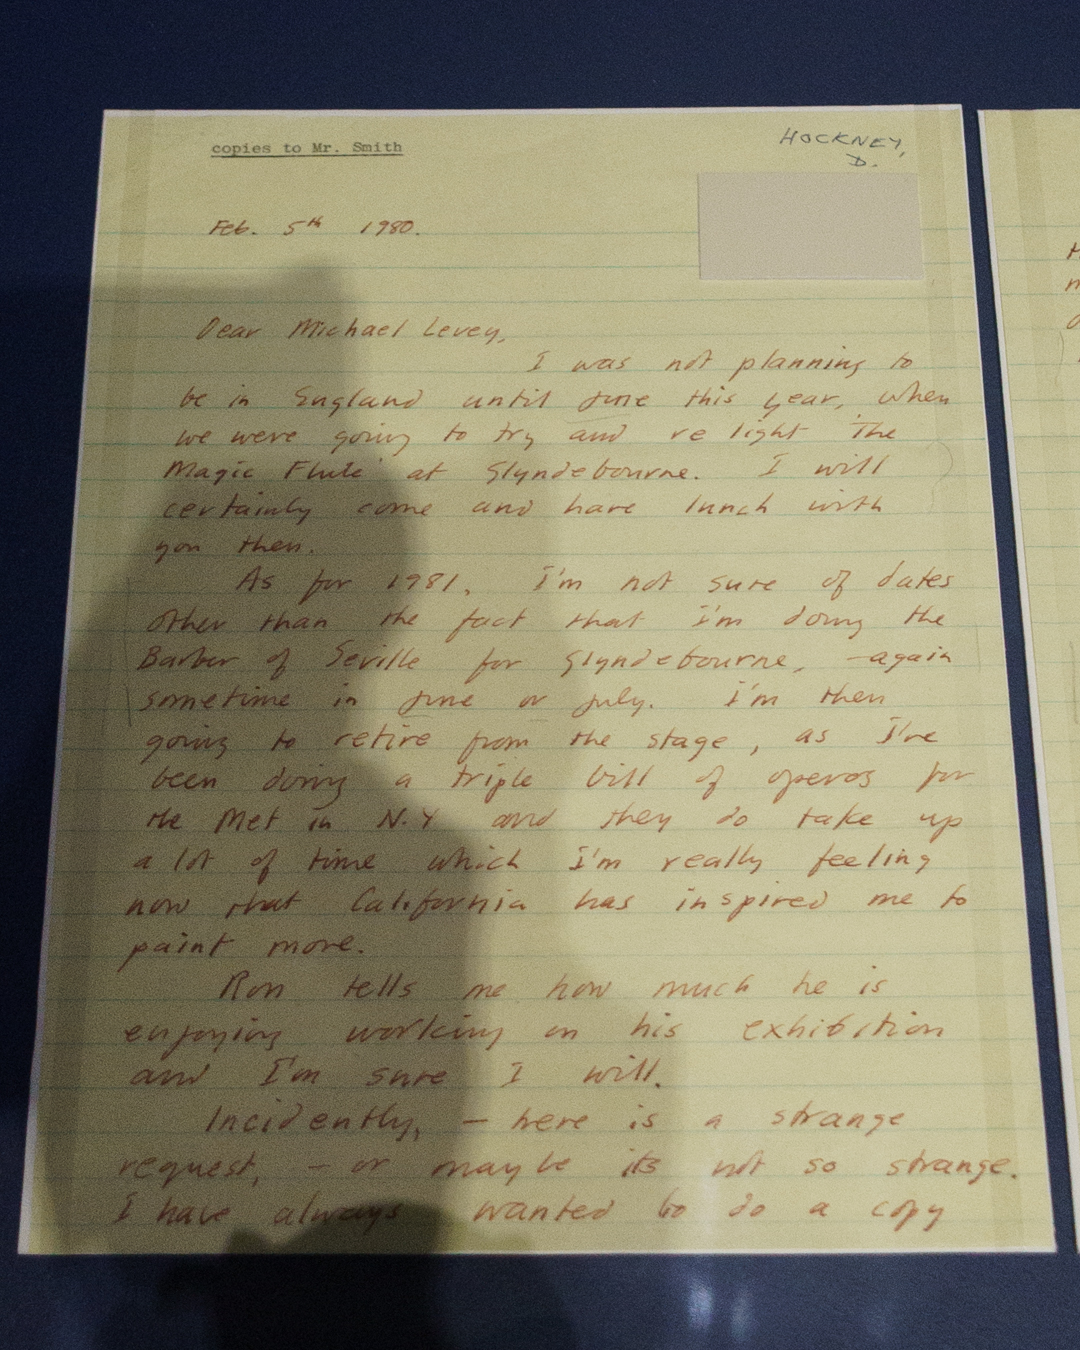 copies to Mr. Smith
HOCKNEY,
D.
Feb. 5th 1980.
Dear Michael Levey,
I was not planning to
be in England until June this year, when
we were going to try and re light The
Magic Flute' at Glyndebourne. I will
certainly come and have lunch with
you then.
As for 1981, I'm not sure of dates
other than the fact that I'm doing the
Barber of Seville for Glyndebourne, -again
sometime in June or July. I'm then
going to retire from the stage, as I've
been doing a triple bill of operas for
the Met in N.Y and they do take up
a lot of time which I'm really feeling
now that California has inspired me to
paint more.
Ron tells me how much he is
enjoying working on his exhibition
and I'm sure I will.
Incidently, - here is a strange
request, - or maybe its not so strange.
I have always wanted to do a copy